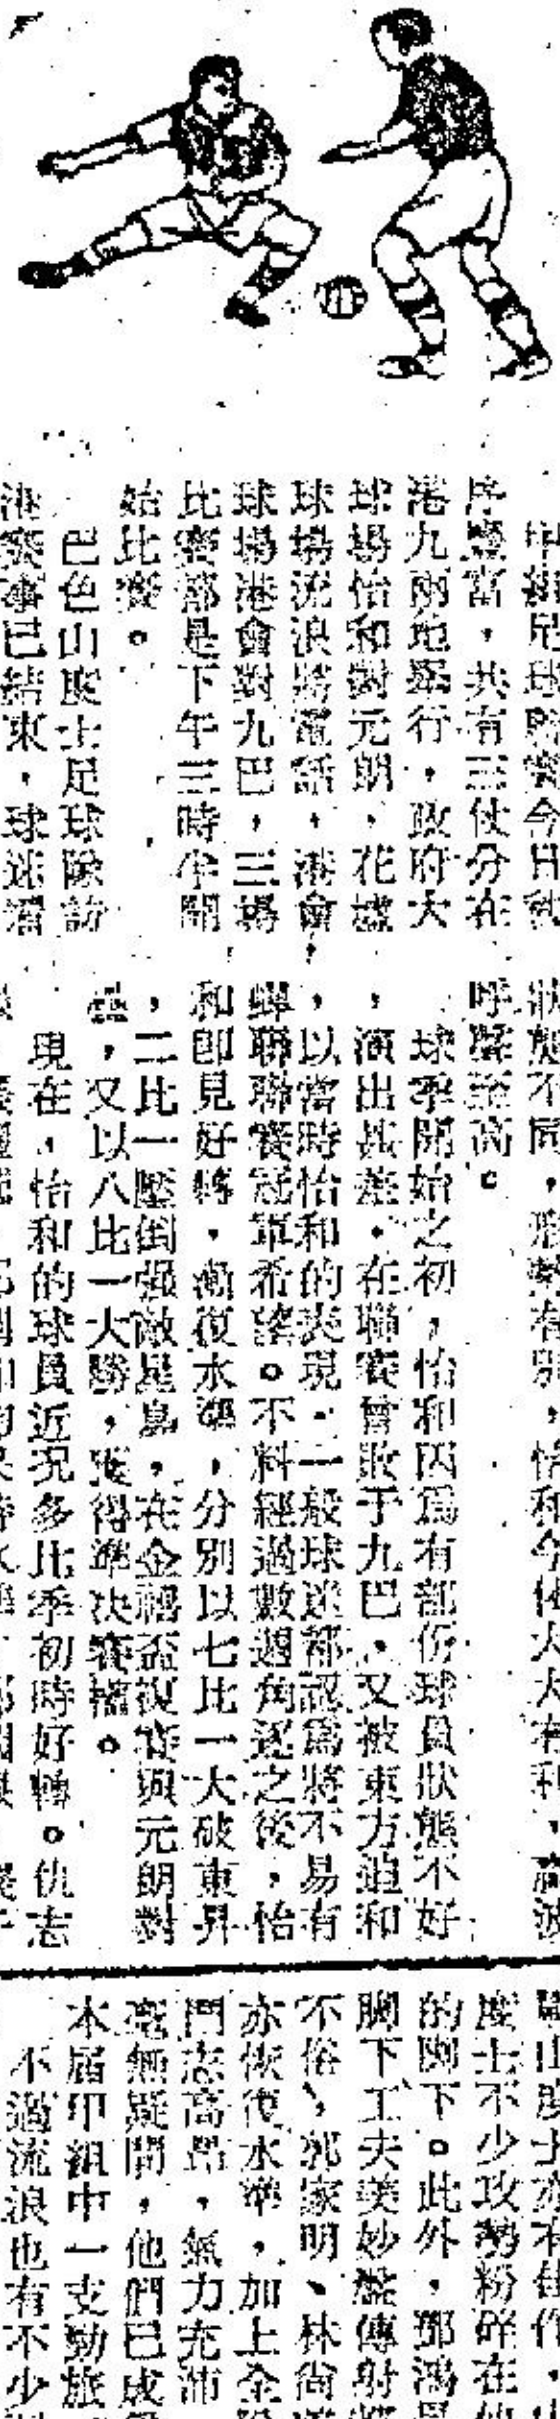 甲組足球聯賽今日秩
序豐富，共有三仗分在
港九兩地舉行，政府大
球場怡和對元朗，花墟
球場流浪將電話，港會
球場港會對九巴，三場
比賽都是下午三時半開
始比賽。
巴色山度士足球隊訪
港賽事已結束，球迷
狀態不同，形勢各別，怡和今仗大大有利，高
呼聲至高。
球季開始之初，怡和因爲有部份球員狀態不好
，演出甚差，在聯賽曾敗于九巴，又被東方迫和
，以當時怡和的表現，一般球迷都認爲將不易有
蟬聯聯賽冠軍希望。不料經過數週角逐之後，怡
和即見好轉，漸復水準，分別以七比一大破東昇
，二比一壓倒強敵星島，在金禧盃復賽與元朗對
壘，又以八比一大勝，獲得準決賽權。
現在，怡和的球員近况多比季初時好轉。仇志
度士不少攻勢粉碎在他
的脚下。此外，鄧鴻
脚下工夫美妙盤傳射
不俗、郭家明、林尚
亦恢復水準，加上全
鬥志高昂，氣力充沛
毫無疑問，他們已成
本届甲組中一支勁旅
不過流浪也有不少